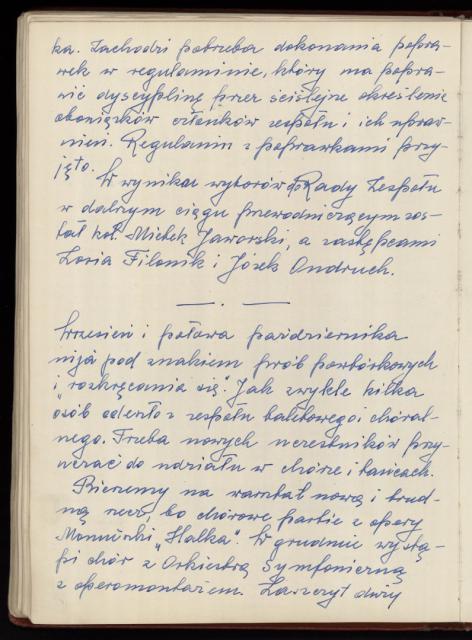 ka. Zachodzi potrzeba dokonania popra-
wek w regulaminie, który ma popra-
wić dyscyplinę przez ściślejsze określenie
obowiązków członków zespołu i ich upraw-
nień. Regulamin z poprawkami przy-
jęto.
W wyniku wyborów do Rady Zespołu
w dalszym ciągu przewodniczącym zos-
tał kol. Mietek Jaworski, a zastępcami
Zosia Filonik i Józek Onduch.
— . —
Wrzesień i połowa października
mija pod znakiem prób powtórkowych
i "rozkręcania się". Jak zwykle kilka
osób odeszło z zespołu baletowego i chóral-
nego. Trzeba nowych uczestników przy-
uczać do udziału w chórze i tańcach.
Bierzemy na warsztat nową i trud-
ną rzecz bo chórowe partie z opery
Moniuszki "Halka". W grudniu wystą-
pi chór z Orkiestrą Symfoniczną
z operomontażem. Zaszczyt duży